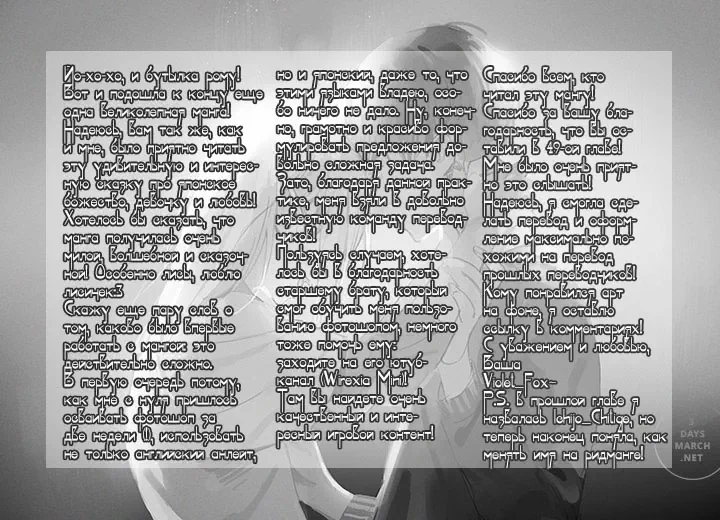 Йо-хо-хо, и бутылка рому!
Вот и подошла к концу еще
одна великолепная манга!
Надеюсь, вам так же, как
и мне, было приятно читать
эту удивительную и интерес-
ную сказку про японское
божество, девочку и любовь!
Хотелось бы сказать, что
манга получилась очень
милой, волшебной и сказоч-
ной! Особенно лисы, люблю
лисичек3
Скажу еще пару слов о
том, каково было впервые
работать с мангой: это
действительно сложно.
В первую очередь потому,
как мне с нуля пришлось
осваивать фотошоп за
две недели 0, использовать
не только английский анлейт,
но и японский, даже то, что
этими языками владею, осо-
бо ничего не дало. Ну, конеч-
но, грамотно и красиво фор-
мулировать предложения до-
вольно сложная задача.
Зато, благодаря данной прак-
тике, меня взяли в довольно
известную команду перевод-
чиков!
Пользуясь случаем, хоте-
лось бы в благодарность
старшему брату, который
смог обучить меня пользо-
ванию фотошопом, немного
тоже помочь ему:
заходите на его ютуб-
канал (Wirexia Mini)!
Там вы найдете очень
качественный и инте-
ресный игровой контент!
Спасибо всем, кто
читал эту мангу!
Спасибо за вашу бла-
годарность, что вы ос-
тавили в 49-ой главе!
Мне было очень прият-
но это слышать!
Надеюсь, я смогла сде-
лать перевод и оформ-
ление максимально по-
хожими на перевод
прошлых переводчиков!
Кому понравился арт
на фоне, я оставлю
ссылку в комментариях!
С уважением и любовью,
Ваша
Violet_Fox~
P.S. В прошлой главе я
назвалась Ichijo_Chitige, но
теперь наконец поняла, как
менять имя на ридманге!
DAYS
MARCH
.NET